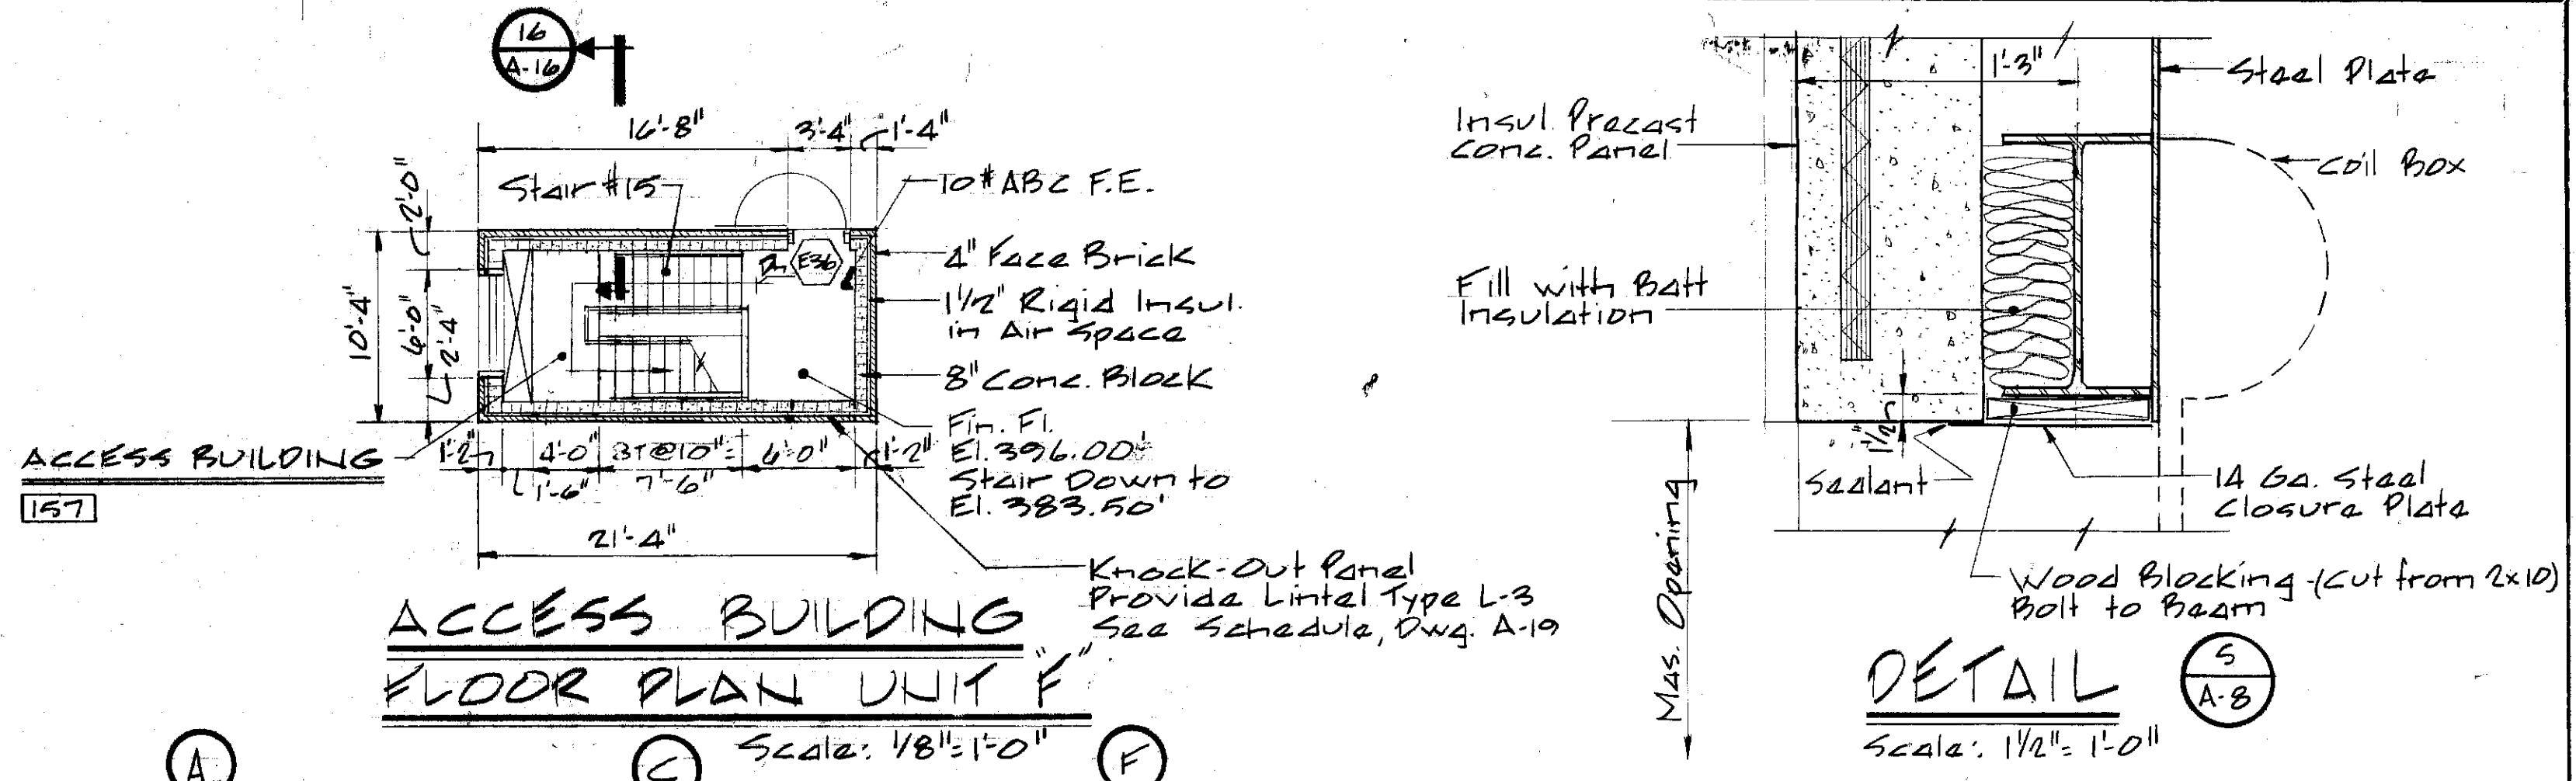 16
A-16
16'-8"
3'-4"
1'-4"
2'-0"
Stair #15
10# ABC F.E.
10'-4"
6'-0"
2'-4"
Dn
E36
4" Face Brick
1 1/2" Rigid Insul.
in Air Space
8" Conc. Block
Fin. Fl.
El. 396.00'
Stair Down to
El. 383.50'
ACCESS BUILDING
157
1'-2"
1'-6"
4'-0"
7'-6"
6'-0"
1'-2"
21'-4"
Knock-Out Panel
Provide Lintel Type L-3
See Schedule, Dwg. A-19
ACCESS BUILDING
FLOOR PLAN UNIT "F"
Scale: 1/8"=1'-0"
A
C
F
1'-3"
Steel Plate
Insul. Precast
Conc. Panel
Coil Box
Fill with Batt
Insulation
1 1/2"
Sealant
14 Ga. Steel
Closure Plate
Mas. Opening
Wood Blocking-(Cut from 2x10)
Bolt to Beam
DETAIL
5
A-8
Scale: 1 1/2"=1'-0"